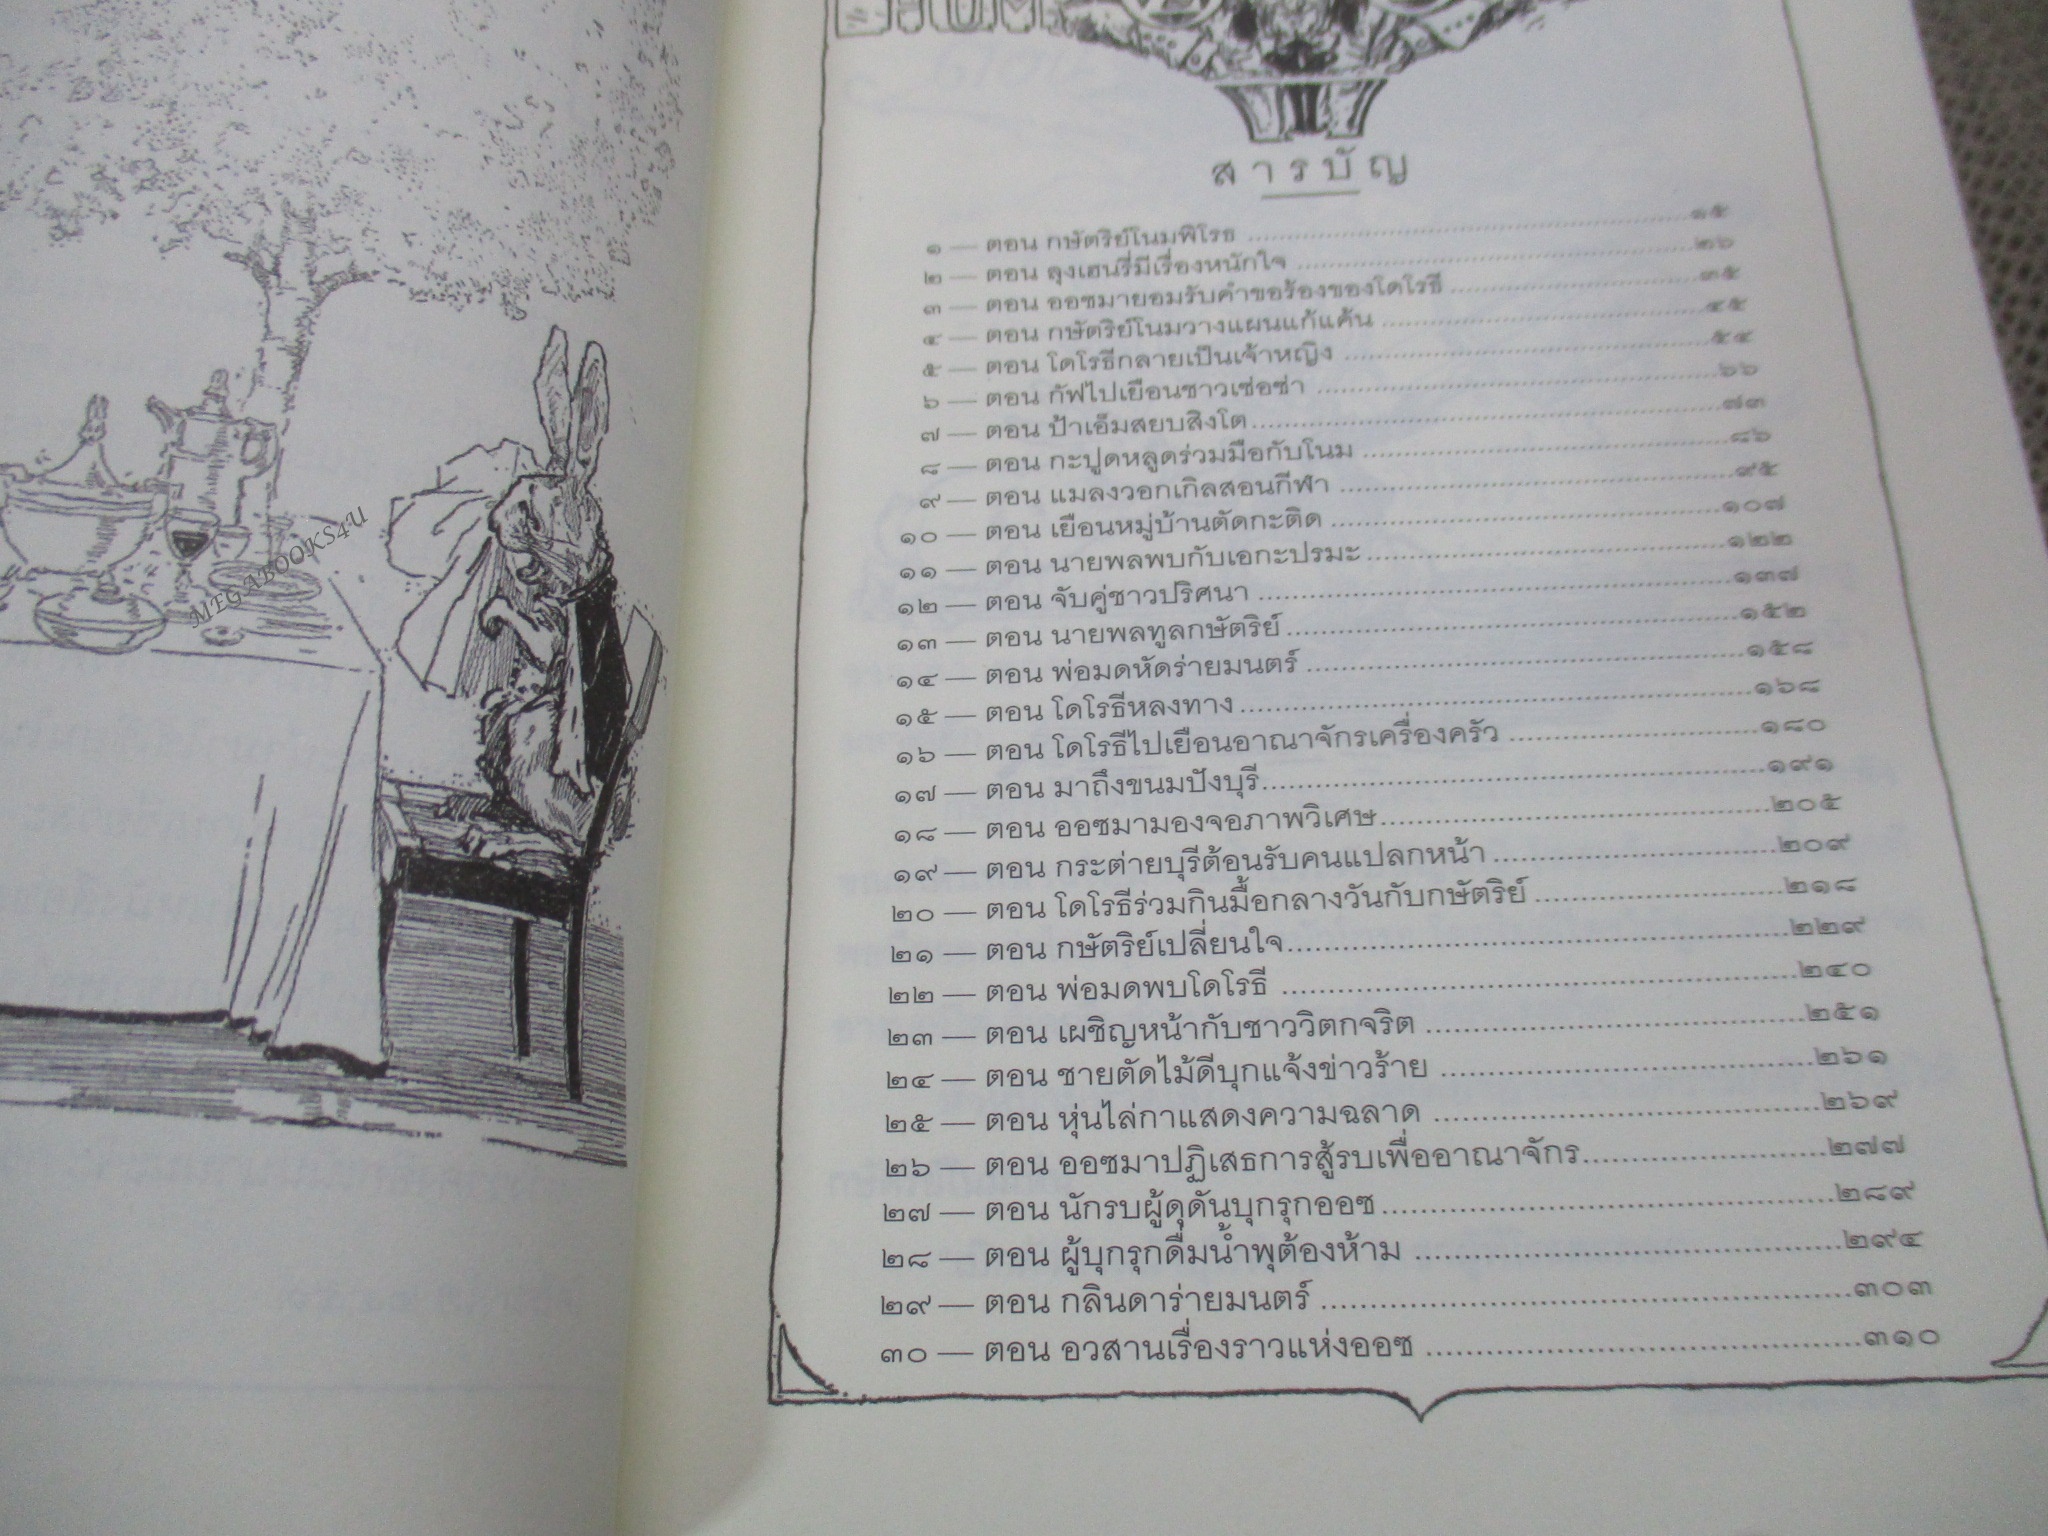 MEGABOOKS4U
สารบัญ
๑ — ตอน กษัตริย์โนมพิโรธ ๑๕
๒ — ตอน ลุงเฮนรี่มีเรื่องหนักใจ ๒๖
๓ — ตอน ออซมายอมรับคำขอร้องของโดโรธี ๓๕
๔ — ตอน กษัตริย์โนมวางแผนแก้แค้น ๔๕
๕ — ตอน โดโรธีกลายเป็นเจ้าหญิง ๕๔
๖ — ตอน กัฟไปเยือนชาวเซ่อซ่า ๖๖
๗ — ตอน ป้าเอ็มสยบสิงโต ๗๓
๘ — ตอน กะปูดหลูดร่วมมือกับโนม ๘๖
๙ — ตอน แมลงวอกเกิลสอนกีฬา ๙๕
๑๐ — ตอน เยือนหมู่บ้านตัดกะติด ๑๐๗
๑๑ — ตอน นายพลพบกับเอกะปรมะ ๑๒๒
๑๒ — ตอน จับคู่ชาวปริศนา ๑๓๗
๑๓ — ตอน นายพลทูลกษัตริย์ ๑๕๒
๑๔ — ตอน พ่อมดหัดร่ายมนตร์ ๑๕๘
๑๕ — ตอน โดโรธีหลงทาง ๑๖๘
๑๖ — ตอน โดโรธีไปเยือนอาณาจักรเครื่องครัว ๑๘๐
๑๗ — ตอน มาถึงขนมปังบุรี ๑๙๑
๑๘ — ตอน ออซมามองจอภาพวิเศษ ๒๐๕
๑๙ — ตอน กระต่ายบุรีต้อนรับคนแปลกหน้า ๒๐๙
๒๐ — ตอน โดโรธีร่วมกินมื้อกลางวันกับกษัตริย์ ๒๑๘
๒๑ — ตอน กษัตริย์เปลี่ยนใจ ๒๒๙
๒๒ — ตอน พ่อมดพบโดโรธี ๒๔๐
๒๓ — ตอน เผชิญหน้ากับชาววิตกจริต ๒๕๑
๒๔ — ตอน ชายตัดไม้ดีบุกแจ้งข่าวร้าย ๒๖๑
๒๕ — ตอน หุ่นไล่กาแสดงความฉลาด ๒๖๙
๒๖ — ตอน ออซมาปฏิเสธการสู้รบเพื่ออาณาจักร ๒๗๗
๒๗ — ตอน นักรบผู้ดุดันบุกรุกออซ ๒๘๙
๒๘ — ตอน ผู้บุกรุกดื่มน้ำพุต้องห้าม ๒๙๔
๒๙ — ตอน กลินดาร่ายมนตร์ ๓๐๓
๓๐ — ตอน อวสานเรื่องราวแห่งออซ ๓๑๐